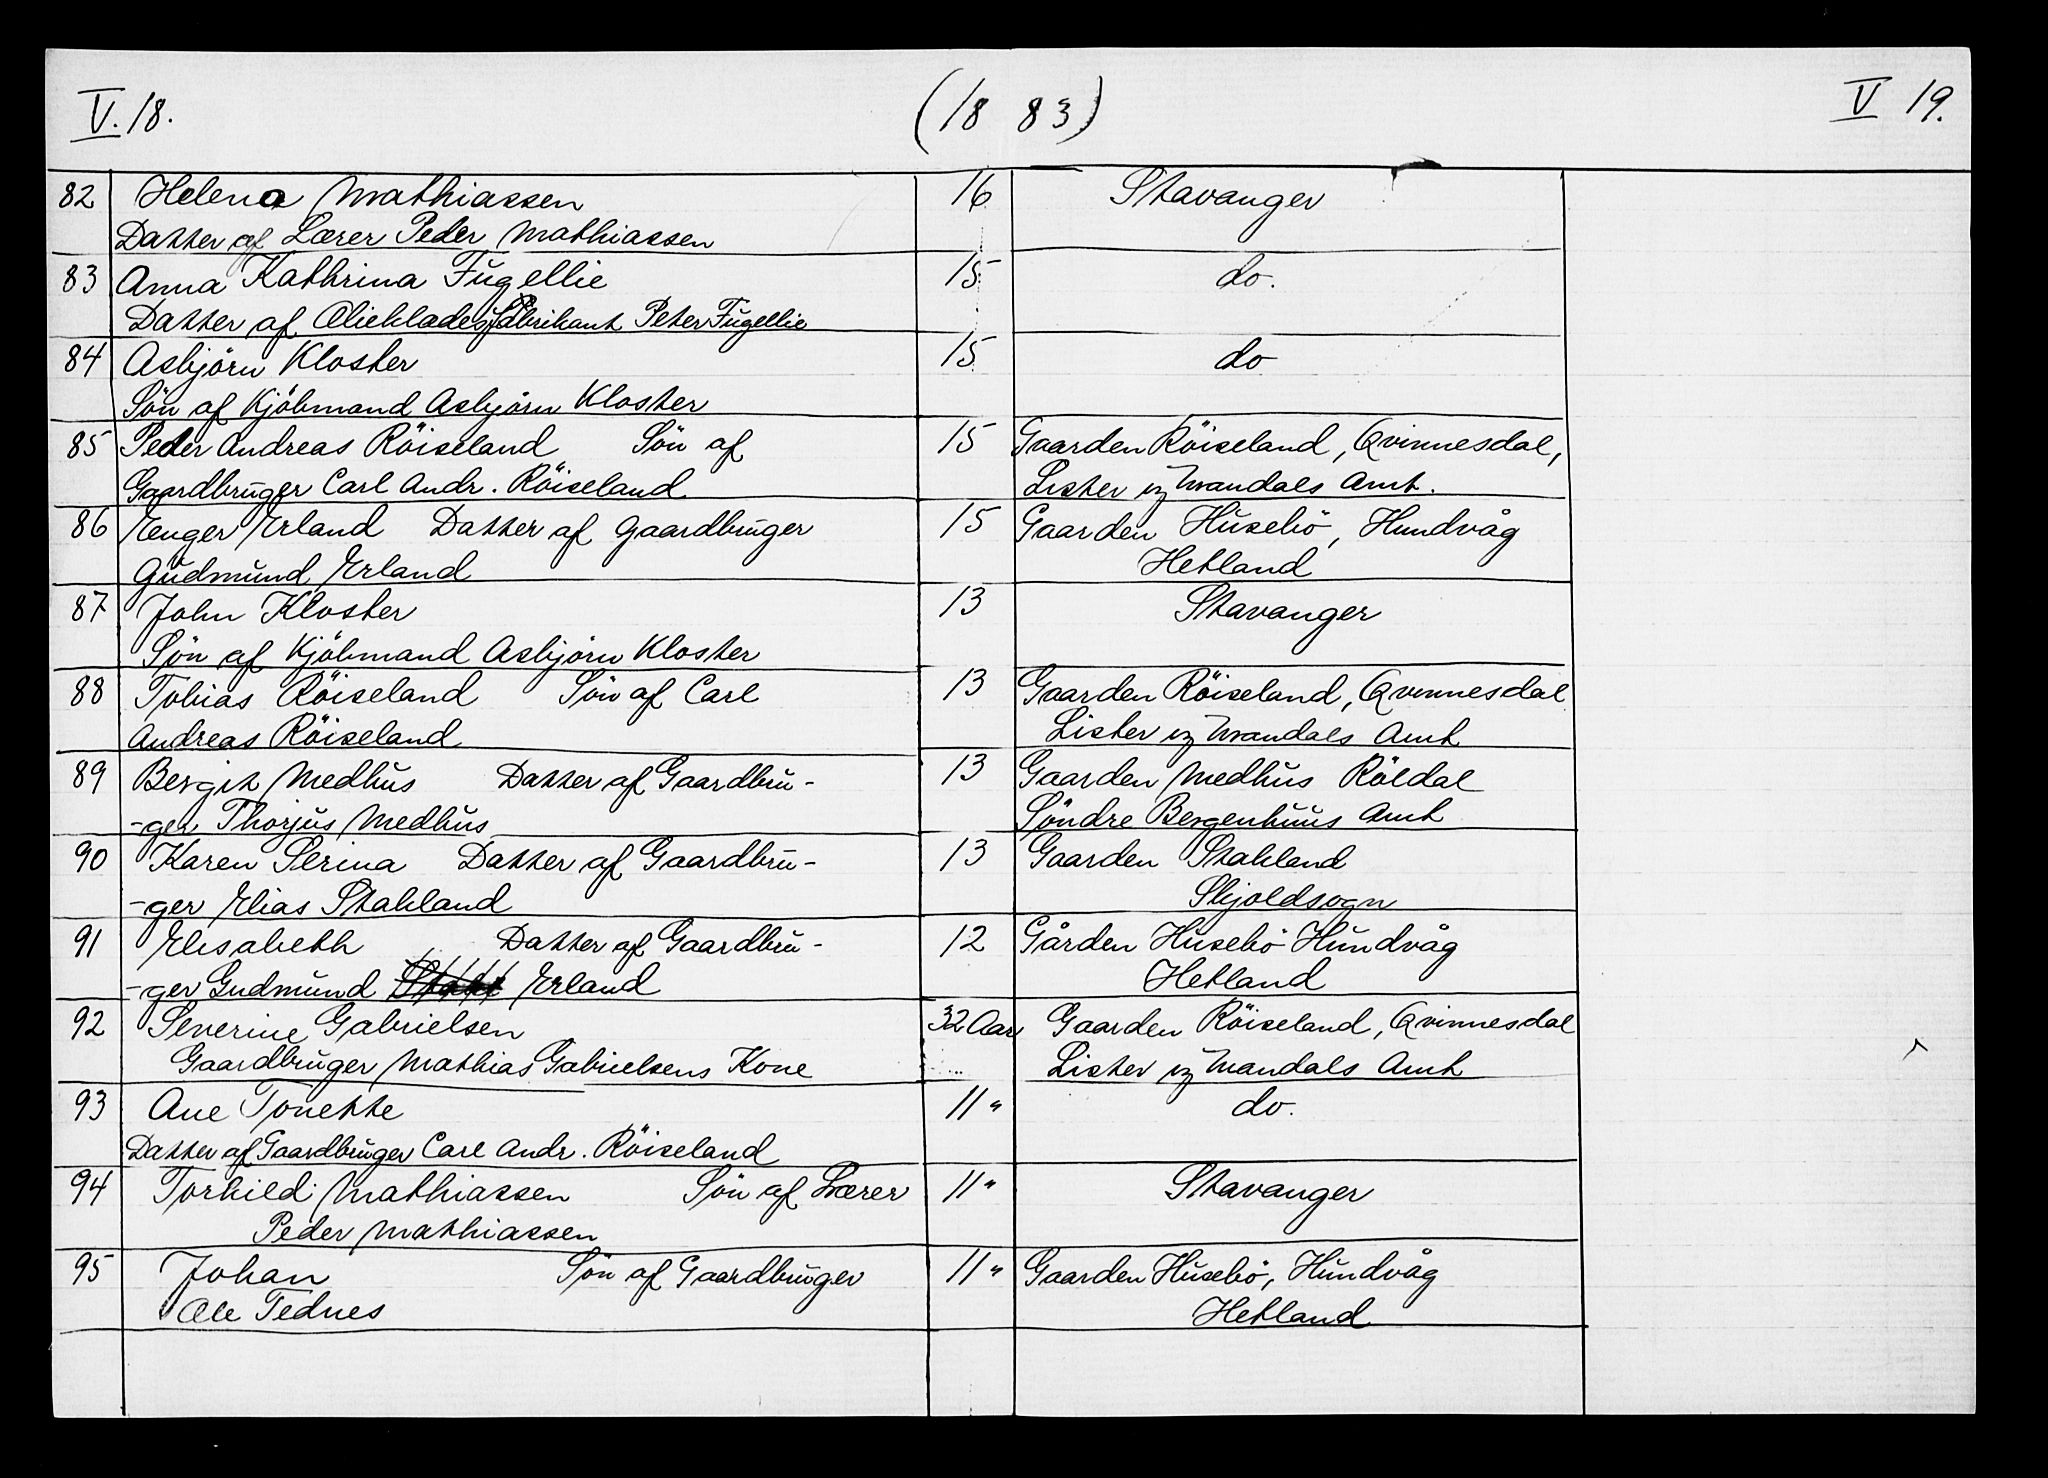 V. 18. (18 83) V 19.
82 Helena Mathiassen 16 Stavanger
Datter af Lærer Peder Mathiassen
83 Anna Kathrina Fugellie 15 do.
Datter af Oliekladesfabrikant Peter Fugellie
84 Asbjörn Kloster 15 do
Sön af Kjöbmand Asbjörn Kloster
85 Peder Andreas Röiseland Sön af 15 Gaarden Röiseland, Qvinnesdal,
Gaardbruger Carl Andr. Röiseland Lister og Mandals Amt.
86 Enger Erland Datter af Gaardbruger 15 Gaarden Husebö, Hundvåg
Gudmund Erland Hetland
87 John Kloster 13 Stavanger
Sön af Kjöbmand Asbjörn Kloster
88 Tobias Röiseland Sön af Carl 13 Gaarden Röiseland, Qvinnesdal
Andreas Röiseland Lister og Mandals Amt
89 Bergit Medhus Datter af Gaardbru- 13 Gaarden Medhus Röldal
-ger Thorjus Medhus Söndre Bergenhuus Amt
90 Karen Serina Datter af Gaardbru- 13 Gaarden Stakland
-ger Elias Stakland Skjoldsogn
91 Elisabeth Datter af Gaardbru- 12 Gården Husebö Hundvåg
-ger Gudmund Erland Hetland
92 Severine Gabrielsen 32 Aar Gaarden Röiseland, Qvinnesdal
Gaardbruger Mathias Gabrielsens Kone Lister og Mandals Amt
93 Ane Tonette 11 " do.
Datter af Gaardbruger Carl Andr. Röiseland
94 Torkild Mathiassen Sön af Lærer 11 " Stavanger
Peder Mathiassen
95 Johan Sön af Gaardbruger 11 " Gaarden Husebö, Hundvåg
Ole Tednes Hetland